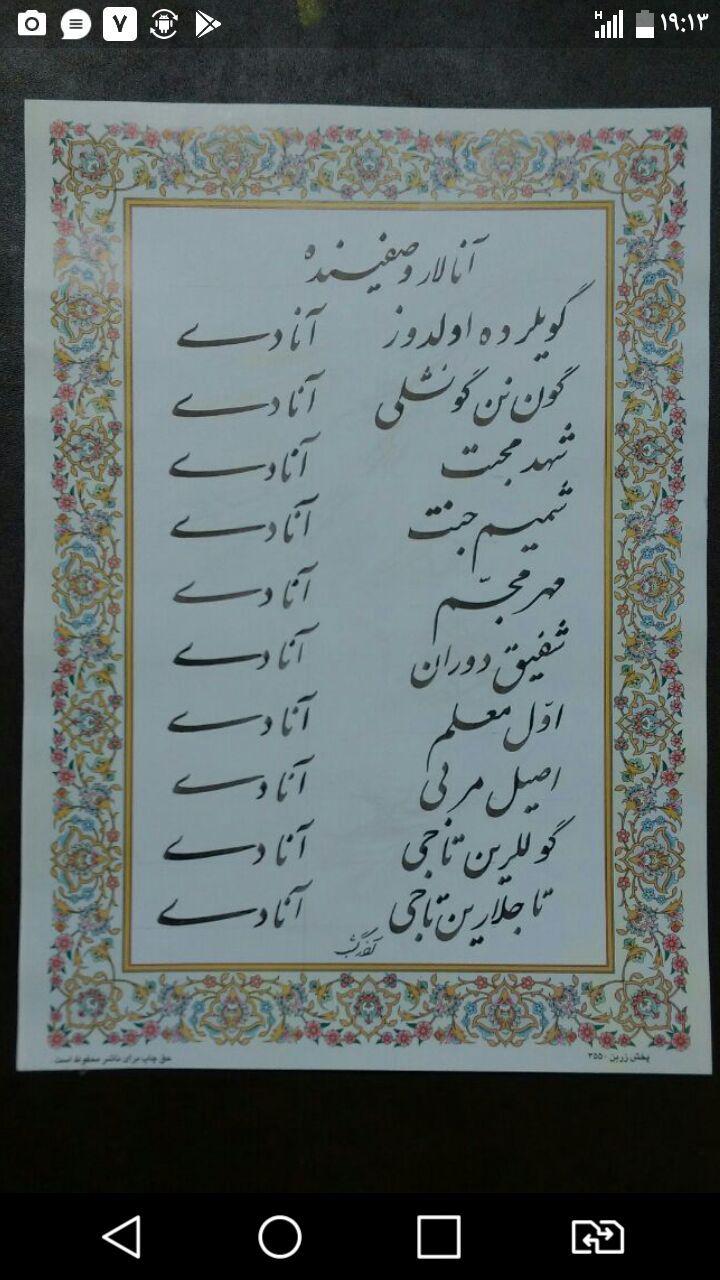 ۱۹:۱۳
آنالار وصفینده
گویلرده اولدوز آنادے
گون نن گونشلی آنادے
شهد محبت آنادے
شمیم جنت آنادے
مهر مجسّم آنادے
شفیق دوران آنادے
اوّل معلم آنادے
اصیل مربی آنادے
گوللرین تاجی آنادے
تاجلارین تاجی آنادے
پخش زرین ۳۵۵۰
حق چاپ برای ناشر محفوظ است